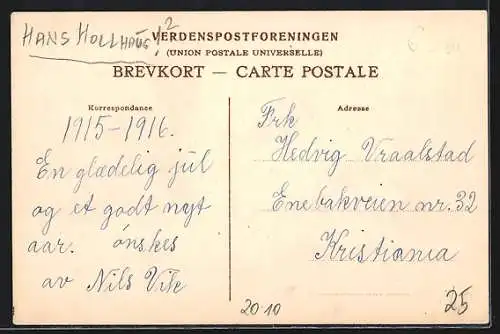 HANS HOLLHAUG!?
VERDENSPOSTFORENINGEN
(UNION POSTALE UNIVERSELLE)
BREVKORT — CARTE POSTALE
Korrespondance
Adresse
1915-1916.
En glædelig jul
og et godt nyt
aar. ønskes
av Nils Vik
Frk
Hedvig Vraalstad
Enebakveien nr. 32
Kristiania
20-10
25